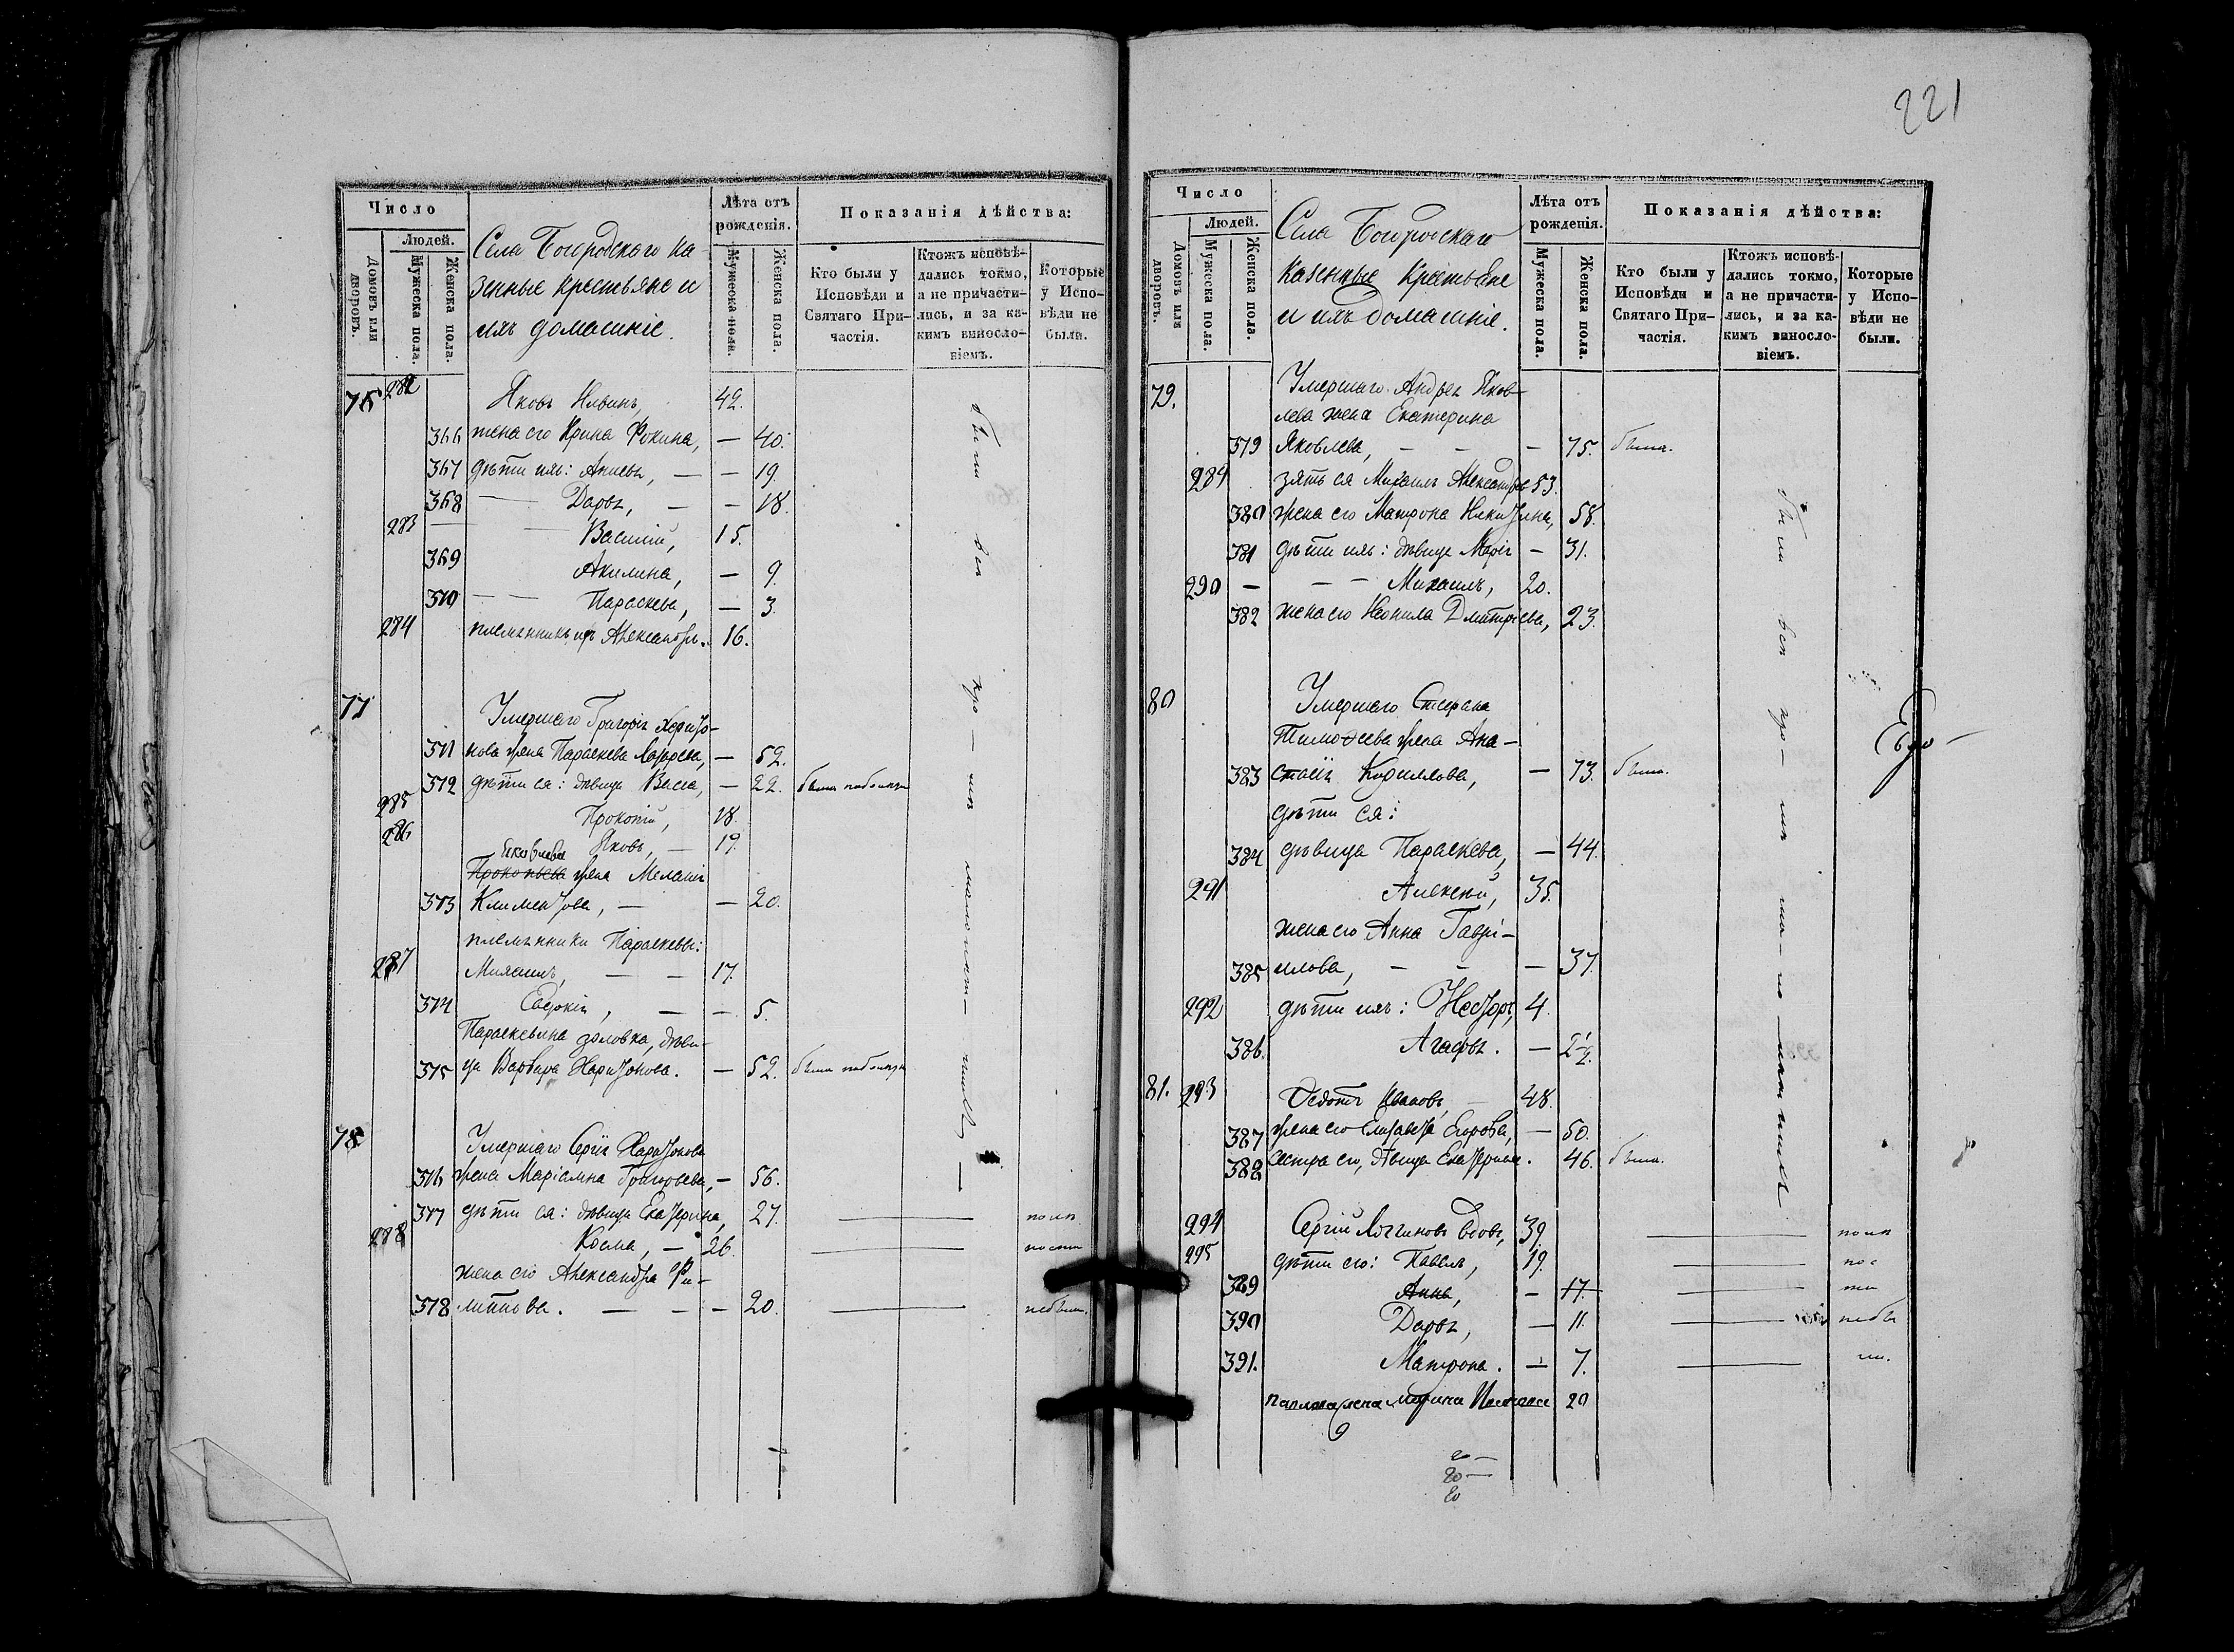 221
Число
Людей.
Домовъ или дворовъ.
Мужеска пола.
Женска пола.
Села Богородскаго ка-
зенные крестьяне и
ихъ домашніе.
Лѣта отъ
рожденія.
Мужеска пола.
Женска пола.
Показанія дѣйства:
Кто были у
Исповѣди и
Святаго При-
частія.
Ктожъ исповѣ-
дались токмо,
а не причасти-
лись, и за ка-
кимъ винносло-
віемъ.
Которые
у Испо-
вѣди не
были.
282 Яковъ 42.
366 жена его Ирина Фокина, — 40.
367 дѣти ихъ: — — 19.
368 — Дарья, — — 18.
283 — Василій, 15.
369 Акилина, — 9.
370 — — Параскева, — 3.
284 племянникъ ихъ Александръ. 16.
77 Умершаго Григорія Харито-
371 нова жена Параскева — 52.
372 дѣти ея: дѣвица Васса, — 22. была
285 Прокопій, 18.
286 Яковъ, — 19.
Яковлева
Прокопьева жена Меланія
373 Климентова, — — 20.
племянники Параскевы:
287 Михаилъ, — — 17.
374 Евдокія, — — 5.
Параскевина золовка, дѣви-
375 ца Варвара Харитонова. — 52. была
78 Умершаго Сергія Харитонова
376 жена Маріамна Григорьева, — 56.
377 дѣти ея: дѣвица Екатерина, 27.
288 Косма, — 26.
жена его Александра Фи-
378 липпова. — — — 20. небыли.
были все кро — мѣ малолѣт —
Число
Людей.
Домовъ или дворовъ.
Мужеска пола.
Женска пола.
Села Богородскаго
казенные крестьяне
и ихъ домашніе.
Лѣта отъ
рожденія.
Мужеска пола.
Женска пола.
Показанія дѣйства:
Кто были у
Исповѣди и
Святаго При-
частія.
Ктожъ исповѣ-
дались токмо,
а не причасти-
лись, и за ка-
кимъ винносло-
віемъ.
Которые
у Испо-
вѣди не
были.
79. Умершаго Андрея Яков-
лева жена Екатерина
379 Яковлева, — — — 75. была.
289 зять ея Михаилъ Александровъ 53.
380 жена его Матрона Никитина, 58.
381 дѣти ихъ: дѣвица Марія — 31.
290 — — — Михаилъ, 20.
382 жена его Неонила Дмитріева, 23.
80 Умершаго Стефана
Тимофеева жена Ана-
383 стасія Кириллова, — 73. была.
дѣти ея:
384 дѣвица Параскева, — 44.
291 Алексѣй, 35.
жена его Анна Гаврі-
385 илова, — — — 37.
292 дѣти ихъ: 4.
386. Агафья. — 2½.
81. 293 Федотъ Ивановъ, 48.
387 жена его Елизавета Егорова, — 50.
388 сестра его, дѣвица Екатерина. 46. была.
294 Сергій Логгиновъ вдовъ, 39.
295 дѣти его: Павелъ, 19.
389 Анна, — 17.
390 Дарья, — 11.
391. Матрона. — 7.
Павлова жена Марина 20
были все кро — мѣ ма — ло
20 —
20 —
20